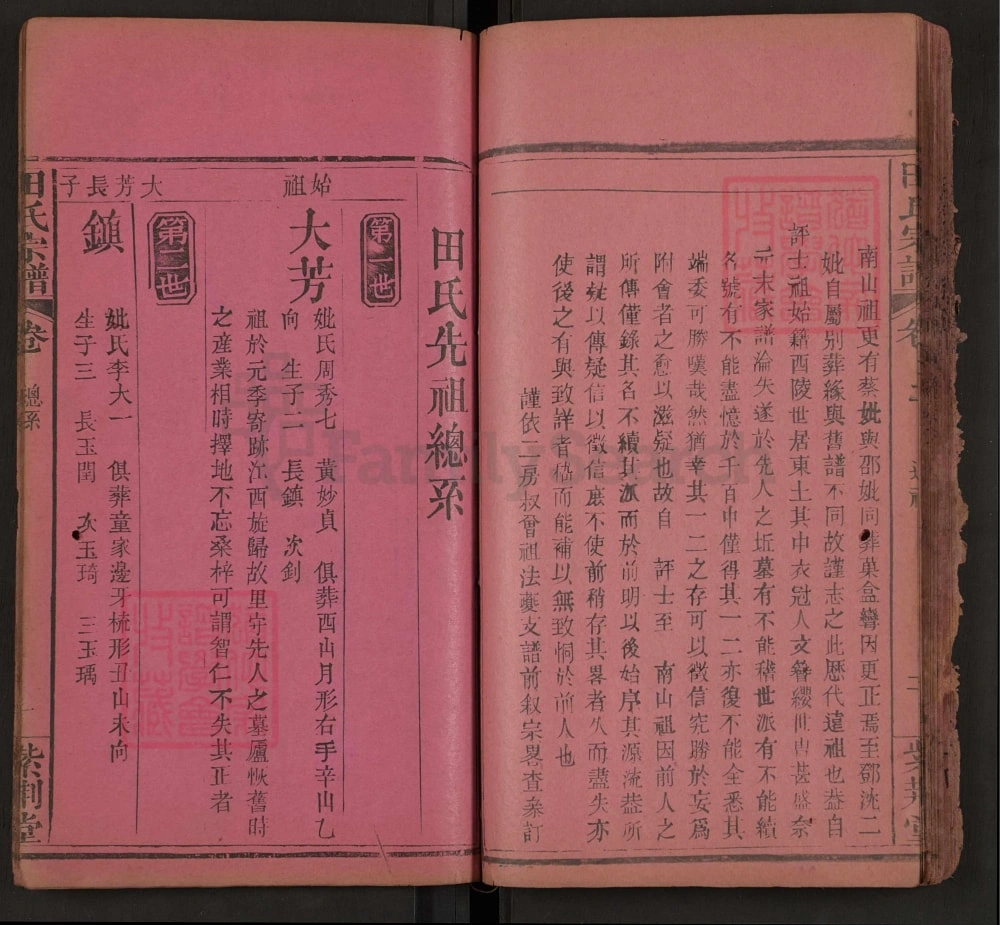 南山祖更有蔡妣與邵妣同葬菓盒彎因更正焉至鄧沈二
妣自屬別葬緣與舊譜不同故謹志之此歷代遠祖也葢自
評士祖始籍西陵世居東土其中衣冠人文簪纓世冑甚盛奈
元末家譜淪失遂於先人之坵墓有不能稽世派有不能續
名號有不能盡憶於千百中僅得其一二亦復不能全悉其
端委可勝嘆哉然猶幸其一二之存可以徵信究勝於妄爲
附會者之愈以滋疑也故自 評士至 南山祖因前人之
所傳僅錄其名不續其派而於前明以後始序其源流葢所
謂疑以傳疑信以徵信庶不使前稍存其畧者久而盡失亦
使後之有與致詳者恊而能補以無致恫於前人也
謹依二房叔會祖法夔支譜前叙宗畧查叅訂
田氏宗譜 卷
紫荆堂
田氏先祖總系
第一世
始祖
大芳
妣氏周秀七 黃妙貞 俱葬西山月形右手辛山乙
向 生子二 長鎮 次釗
祖於元季寄跡江西旋歸故里守先人之墓廬恢舊時
之產業相時擇地不忘桑梓可謂智仁不失其正者
第二世
大芳長子
鎮
妣氏李大一 俱葬童家邊牙梳形丑山未向
生子三 長玉閏 次玉琦 三玉瑀
田氏宗譜 卷 總系 一 紫荆堂
FamilySearch